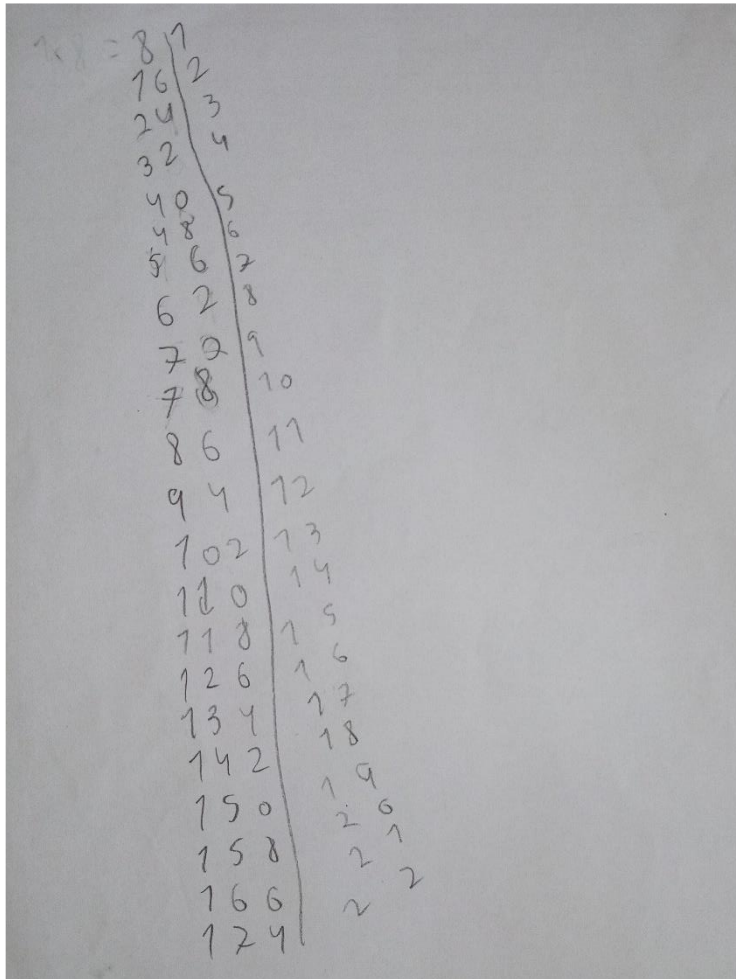 1.8 = 8 1
16 2
24 3
32 4
40 5
48 6
56 7
62 8
70 9
78 10
86 11
94 12
102 13
110 14
118 15
126 16
134 17
142 18
150 19
158 20
166 21
174 22